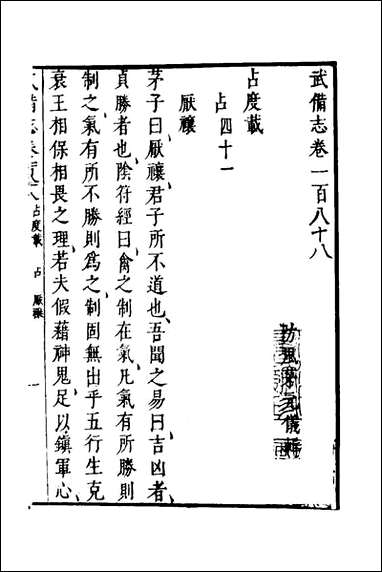 武備志卷一百八十八
防風茅元儀輯
占度載
占四十一
厭禳
茅子曰厭禳君子所不道也吾聞之易曰吉凶者
貞勝者也陰符經曰禽之制在氣凡氣有所勝則
制之氣有所不勝則為之制固無出乎五行生克
衰王相保相畏之理若夫假藉神鬼足以鎮軍心
占度載 占 厭禳 一